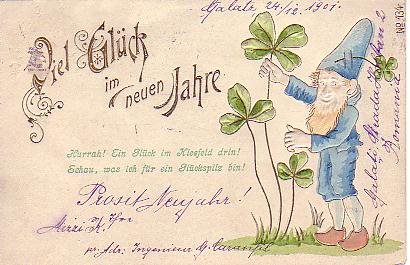 Galatz 24/12. 1901.
No 134
Viel Glück
im
neuen Jahre
Hurrah! Ein Glück im Kleefeld drin!
Schau, was ich für ein Glückspilz bin!
Prosit Neujahr!
Mizzi K.
pr. Adr. Ingenieur
Galati Strada
Romania